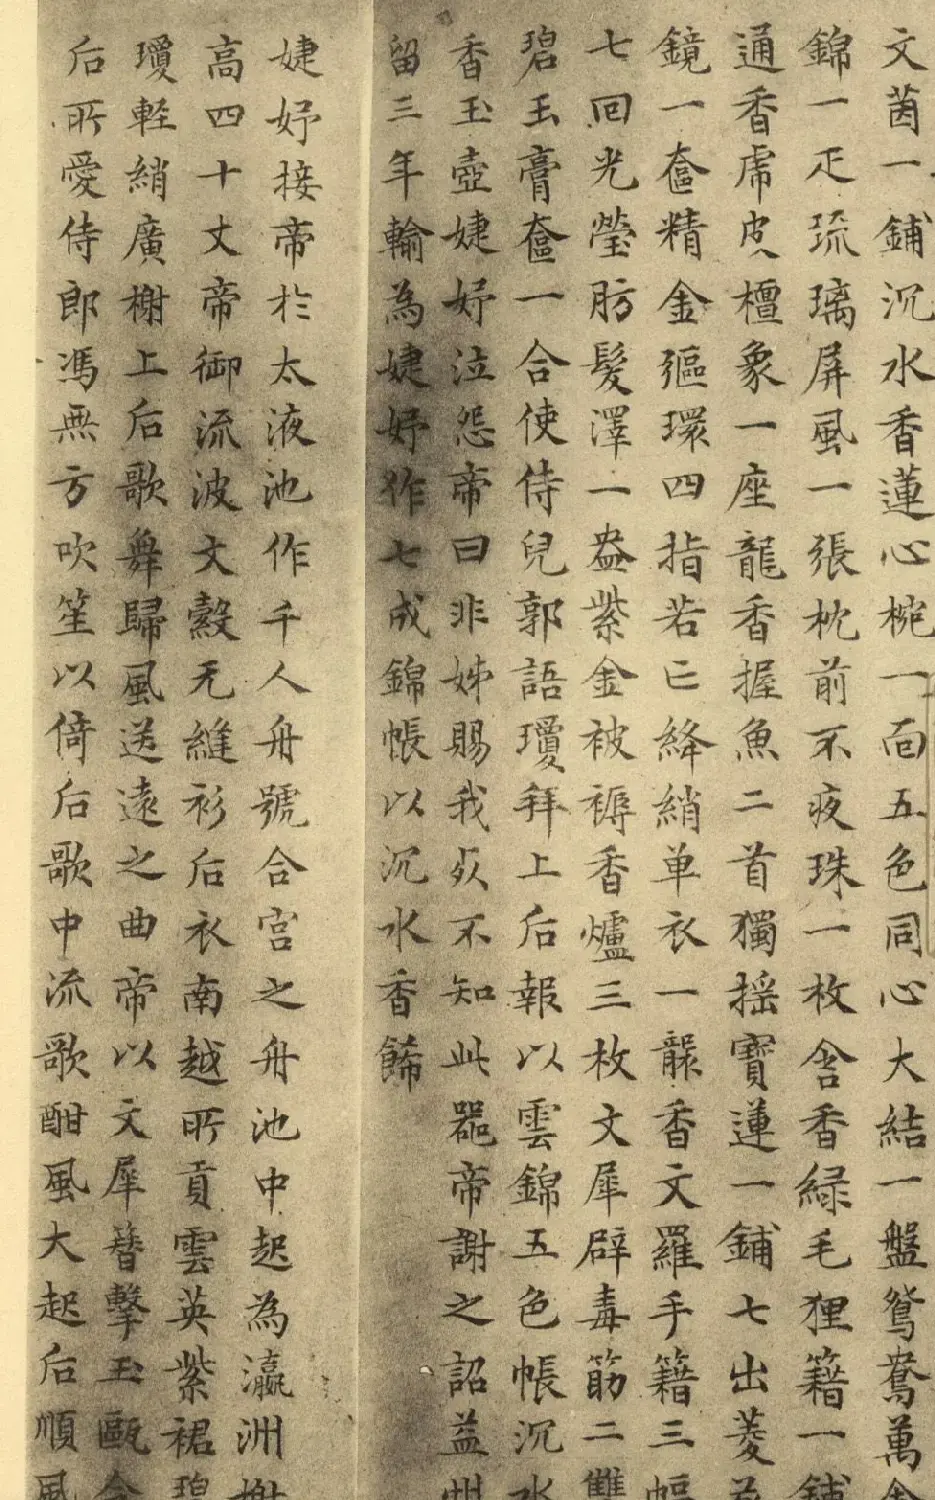 文茵一鋪沉水香蓮心椀一面五色同心大結一盤鴛鴦萬金
錦一疋琉璃屏風一張枕前不夜珠一枚含香緑毛狸籍一鋪
通香虎皮檀象一座龍香握魚二首獨揺寶蓮一鋪七出菱花
鏡一奩精金彄環四指若亡絳綃单衣一襲香文羅手籍三幅
七回光瑩肪髮澤一盎紫金被褥香爐三枚文犀辟毒筯二雙
碧玉膏奩一合使侍兒郭語瓊拜上后報以雲錦五色帳沉水
香玉壺婕妤泣怨帝曰非姊賜我死不知此器帝謝之詔益州
留三年輸為婕妤作七成錦帳以沉水香餙
婕妤接帝於太液池作千人舟號合宫之舟池中起為瀛洲榭
高四十丈帝御流波文縠无縫衫后衣南越所貢雲英紫裙碧
瓊軽綃廣榭上后歌舞歸風送遠之曲帝以文犀簪擊玉甌令
后所愛侍郎馮無方吹笙以倚后歌中流歌酣風大起后順風